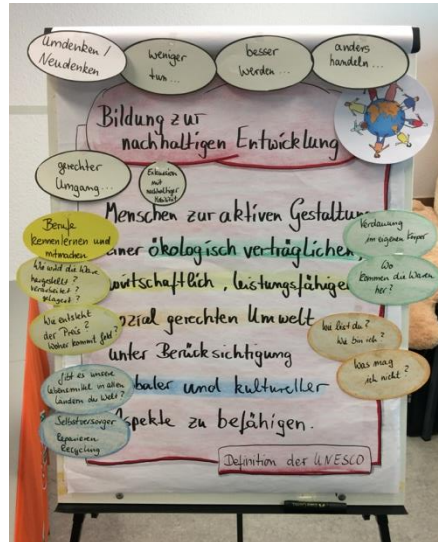 Umdenken /
Neudenken
weniger
tun...
besser
werden...
anders
handeln...
Bildung zur
nachhaltigen Entwicklung
gerechter
Umgang...
mit
nachhaltiger
Menschen zur aktiven Gestaltung
einer ökologisch verträglichen,
wirtschaftlich, leistungsfähigen
sozial gerechten Umwelt
unter Berücksichtigung
globaler und kultureller
Aspekte zu befähigen.
Definition der UNESCO
Berufe
kennenlernen und
mitmachen
Wie wird die Ware
hergestellt?
verarbeitet?
gelagert?
Wie entsteht
der Preis?
Woher kommt Geld?
Gibt es unsere
Lebensmittel in allen
Ländern der Welt?
Selbstversorger
Reparieren
Recycling
Verdauung
im eigenen Körper
Wo
kommen die Waren
her?
Wie bist du?
Wie bin ich?
Was mag
ich nicht?